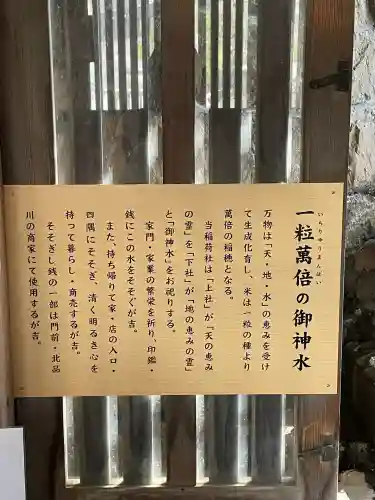 いちりゅうまんばい
一粒萬倍の御神水
万物は「天・地・水」の恵みを受け
て生成化育し、米は一粒の種より
萬倍の稲穂となる。
当稲荷社は「上社」が「天の恵み
の霊」を「下社」が「地の恵みの霊」
と「御神水」をお祀りする。
家門・家業の繁栄を祈り、印鑑・
銭にこの水をそそぐが吉。
また、持ち帰りて家・店の入口・
四隅にそそぎ、清く明るき心を
持って暮らし・商売するが吉。
そそぎし銭の一部は門前・北品
川の商家にて使用するが吉。